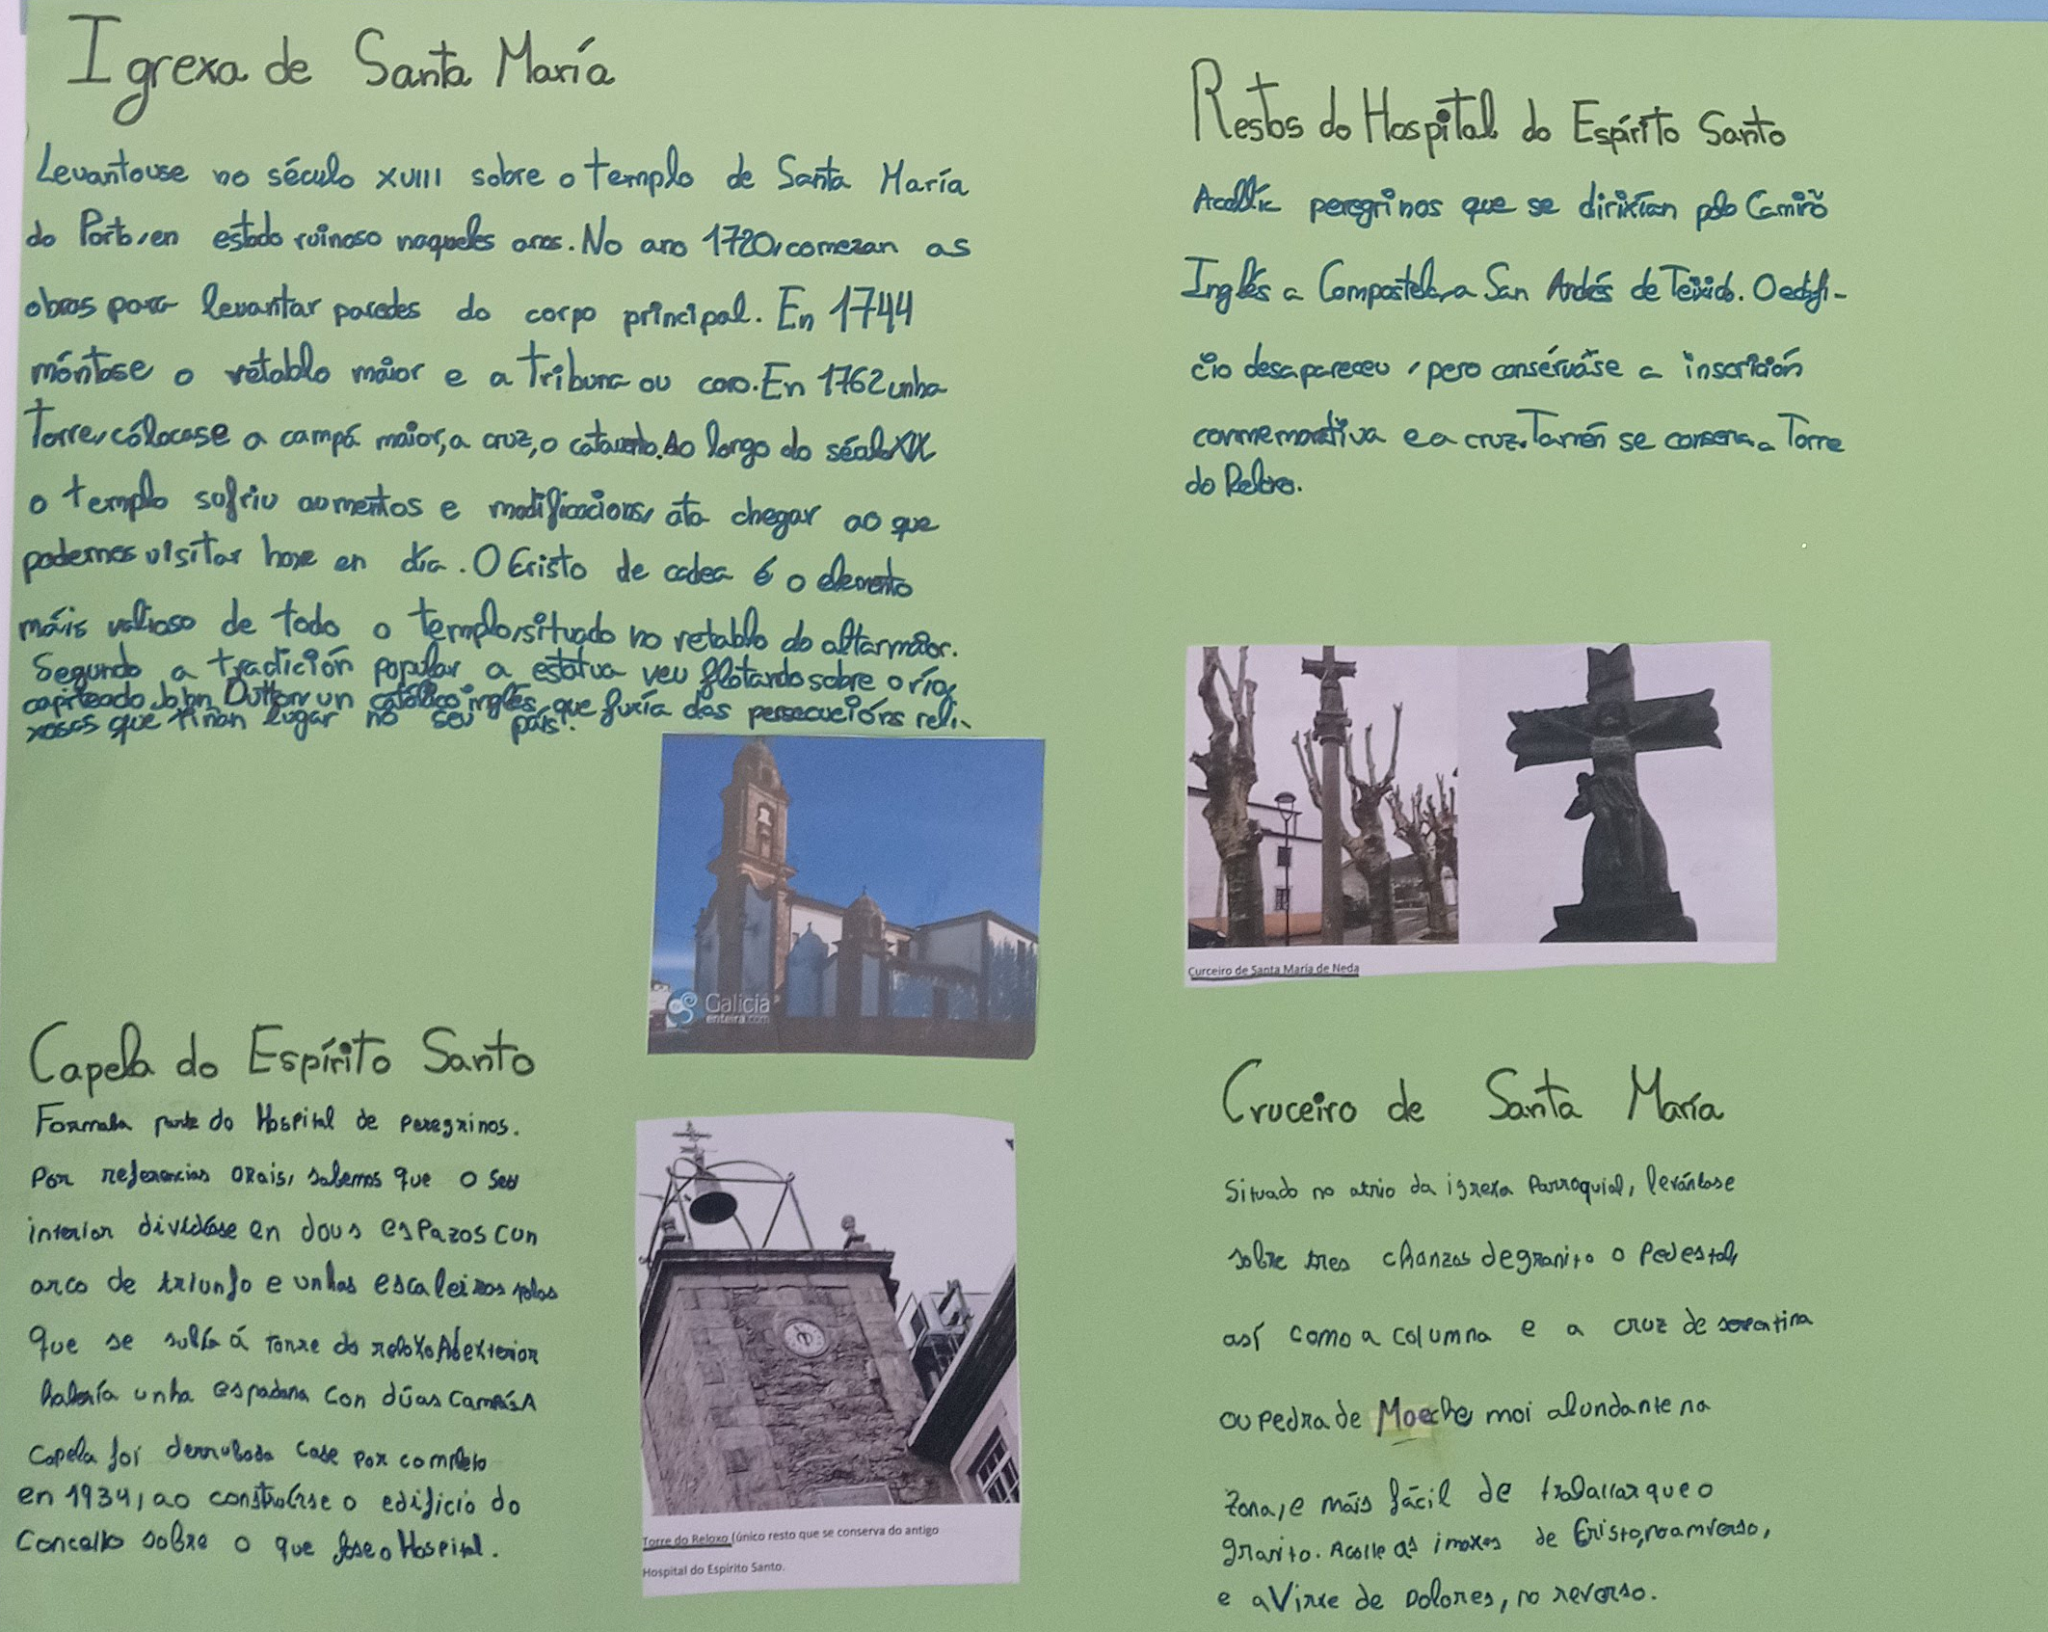 Igrexa de Santa María
Levantouse no século XVIII sobre o templo de Santa María
do Porto, en estado ruinoso naqueles anos. No ano 1720, comezan as
obras para levantar paredes do corpo principal. En 1744
móntase o retablo maior e a tribuna ou coro. En 1762 unha
torre, cólocase a campá maior, a cruz, o catavento. Ao longo do século XIX
o templo sufriu aumentos e modificacions, ata chegar ao que
podemos visitar hoxe en día. O Cristo de cadea é o elemento
máis valioso de todo o templo, situado no retablo do altar maior.
Segundo a tradición popular a estatua veu flotando sobre o río,
capiteado John Dutton, un católico inglés, que fuxía das persecucións reli-
xosas que tiñan lugar no seu país.
Galicia
enteira.com
Capela do Espírito Santo
Formaba parte do Hospital de peregrinos.
Por referencias orais, sabemos que o seu
interior dividíase en dous espazos con
arco de triunfo e unhas escaleiras polas
que se subía á torre do reloxo. Ao exterior
habería unha espadana con dúas campás. A
capela foi derrubada case por completo
en 1934, ao construírse o edificio do
Concello sobre o que fose o Hospital.
Torre do Reloxo (único resto que se conserva do antigo
Hospital do Espírito Santo.
Restos do Hospital do Espírito Santo
Acollía peregrinos que se dirixían polo Camiño
Inglés a Compostela, a San Andrés de Teixido. O edifi-
cio desapareceu, pero consérvase a inscrición
conmemorativa e a cruz. Tamén se conserva a Torre
do Reloxo.
Curceiro de Santa María de Neda
Cruceiro de Santa María
Situado no atrio da igrexa Parroquial, levántase
sobre tres chanzos de granito o pedestal,
así como a columna e a cruz de serpentina
ou pedra de Moeche, moi abundante na
zona, e máis fácil de traballar que o
granito. Acolle as imaxes de Cristo, no anverso,
e a Virxe de Dolores, no reverso.